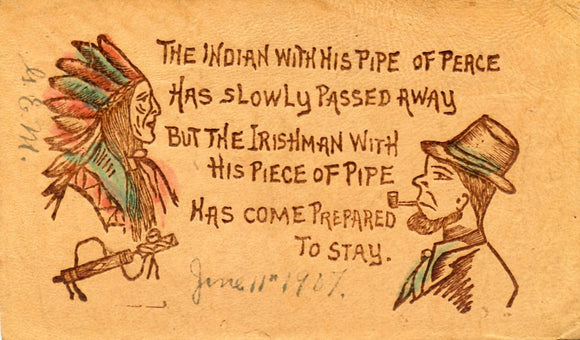 THE INDIAN WITH HIS PIPE OF PEACE
HAS SLOWLY PASSED AWAY
BUT THE IRISHMAN WITH
HIS PIECE OF PIPE
HAS COME PREPARED
TO STAY.
June 11th 1907.